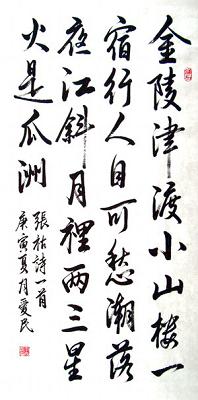 金陵津渡小山楼一
宿行人自可愁潮落
夜江斜月裡两三星
火是瓜洲
張祜詩一首
庚寅夏月爱民